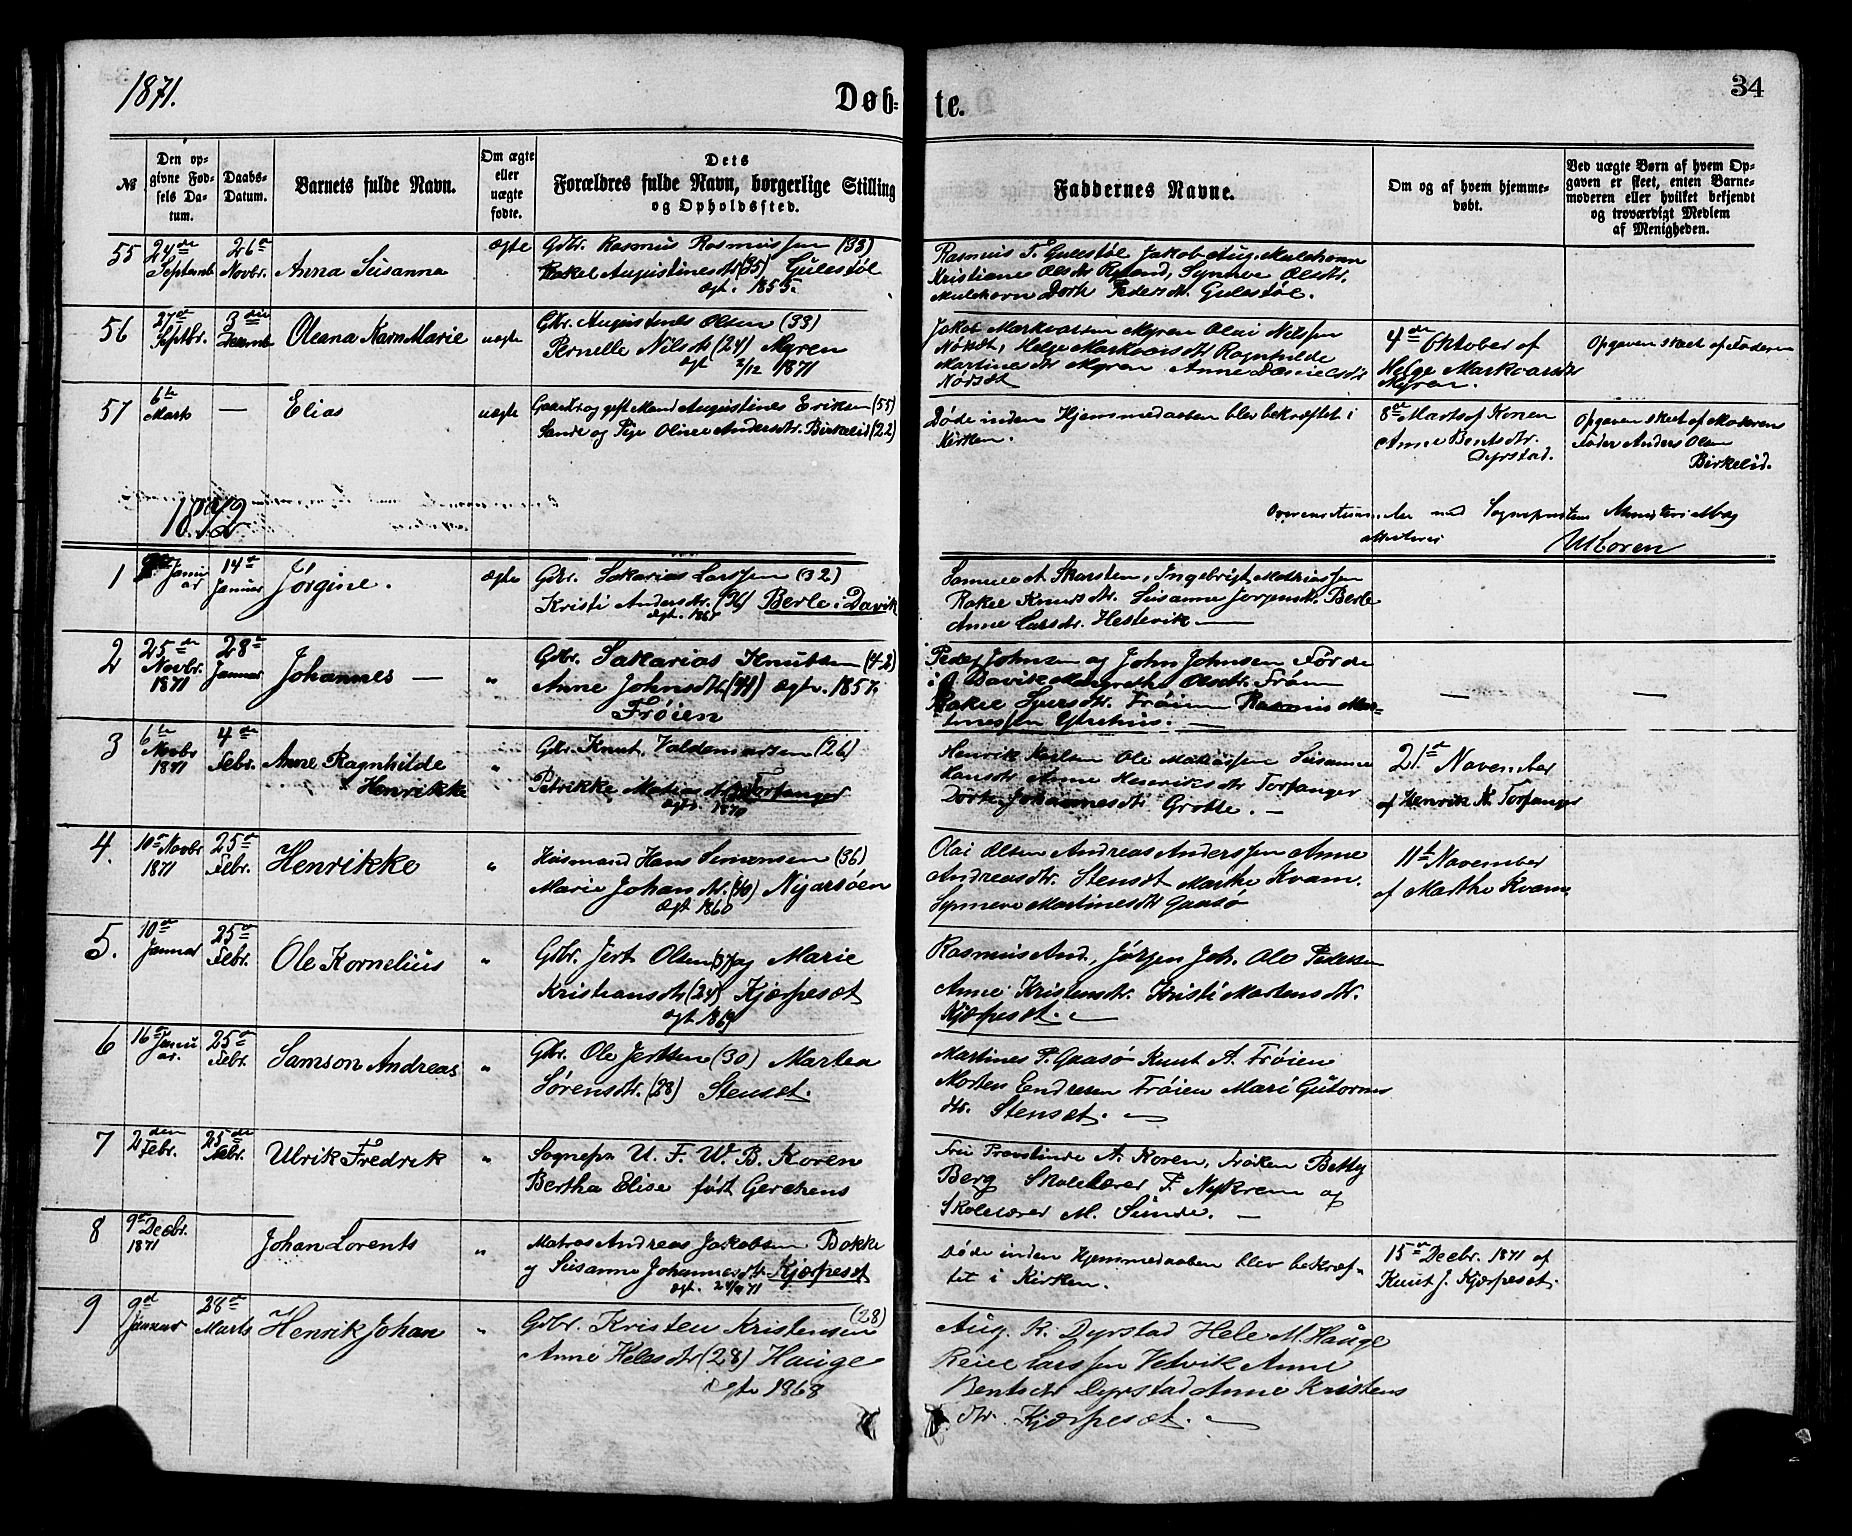 1871.
Døb-
te.
34
№
Den op-
givne Fød-
sels Da-
tum.
Daabs-
Datum.
Barnets fulde Navn.
Om ægte
eller
uægte
fødte.
Dets
Forældres fulde Navn, borgerlige Stilling
og Opholdssted.
Faddernes Navne.
Om og af hvem hjemme-
døbt.
Ved uægte Børn af hvem Op-
gaven er skeet, enten Barne-
moderen eller hvilket bekjendt
og troværdigt Medlem
af Menigheden.
55
24de
Septemb
26
Novbr.
Anna Susanna
ægte
Gdbr. Rasmus Rasmussen (33)
Rakel Augustinesdtr (35) Gulestøl
ægt. 1855.
Rasmus T. Gulestøl Jakob Aug. Mulehavn
Kristiane Olsdtr Ryland, Synneve Olsdtr.
Mulehavn Dorte Pedersdtr. Gulestøl.
56
27de
Septbr.
3die
Decemb
Oleana Karn Marie
uægte
Gbr. Augustines Olsen (33)
Pernelle Nilsdtr (24) Myren
ægt 2/12 1871
Jakob Markvarsen Myren Olai Nilssen
Nødset, Helge Markvarsdtr Ragnhilde
Martinesdtr Myren Anne Danielsdtr
Nødset
4de Oktober af
Helge Markvarsdtr
Myren.
Opgaven skeet af Faderen
57
6te
Mark
—
Elias
uægte
Gaardbr og gift Mand Augustines Eriksen (55)
Sande og Pige Oline Andersdtr. Birkelid (22)
Døde inden Hjemmedaaben blev bekræftet i
Kirken.
8de Marts af Konen
Anne Bentsdtr.
Dyrstad.
Opgaven skeet af Moderens
Fader Anders Olsen
Birkelid.
1872
Sogneprotens Ministerialbog
attesteres
UKoren
1
Janu
ar
14de
Januar
Jørgine.
ægte
Gdbr. Sakarias Larssen (32)
Kristi Andersdtr. (36) Berle i Davik
ægt. 1865
Samuel A. Skarsten, Ingebrigt Mathiassen
Rakel Knudsdtr. Susanne Jørgensdtr. Berle
Anne Larsdtr. Hestevik —
2
25de
Novbr.
1871
28de
Januar
Johannes —
"
Gdbr. Sakarias Knutsen (42)
Anne Johnsdtr. (44) ægt. 1857.
Frøien
Peder Johnsen og John Johnsen Førde
i Davik Margrethe Olsdtr. Frøien
Rakel Sjursdtr. Frøien Rasmus Mar-
tinessen Ytrehus. —
—
—
3
6te
Novbr
1871
4de
Febr.
Anne Ragnhilde
Henrikke
"
Gdbr. Knut Valdemarsen (26)
Petrikke Matiasdtr Torfanger
ægt. 1870
Henrik Karlsen Ole Matiassen Susanne
Hansdtr Anne Henriksdtr Torfanger
Dorte Johannesdtr Grotle. —
21de November
af Henrik K. Torfanger
4.
10de Novbr
1871
25de
Febr.
Henrikke
"
Husmand Hans Simonsen (36)
Marie Johansdtr. (40) Nigarsøen
Ægt 1860
Olai Olsen Andreas Anderssen Anne
Andreasdtr. Stenset Marthe Kvam.
Synneve Martinesdtr Gaasø
11te November
af Marthe Kvam
5.
10de
Januar
25de
Febr.
Ole Kornelius
"
Gdbr. Jert Olsen (37) og Marie
Kristiansdtr (24) Kjærpeset
ægt. 1869
Rasmus And., Jørgen Joh. Ole Pedersen
Anne Kristensdtr. Kristi Martensdtr.
Kjærpeset. —
6
16de Janu
ar.
25de
Febr.
Samson Andreas
"
Gbr. Ole Jertsen (30) Martea
Sørensdtr. (28) Stenset.
Martines P. Gaasø Knut A. Frøien
Morten Endresen Frøien Mari Gutorms
dtr. Stenset. —
7
2den
Febr.
25de
Febr.
Ulrik Fredrik
"
Sognepr. U. F. W. B. Koren
Bertha Elise født Gerckens
Fru Provstinde A. Koren, Frøken Betty
Berg Skolelærer P. Nykrem og
Skolelærer M. Sunde. —
8
9de Decbr.
1871
Johan Lorents
"
Matros Andreas Jakobsen Bakke
og Susanne Johannesdtr. Kjærpeset
ægt. 24/9 71
Døde inden Hjemmedaaben blev bekræf-
tet i Kirken.
15de Decbr. 1871 af
Knut J. Kjærpeset.
9
9de
Januar
28de
Marts
Henrik Johan
"
Gdbr. Kristen Kristensen (28)
Anne Helesdtr (28) Hauge
Ægte 1868
Aug. R. Dyrstad Hele M. Hauge
Reiel Larssen Vetvik Anne
Bentsdtr Dyrstad Anne Kristens
dtr. Kjærpeset. —